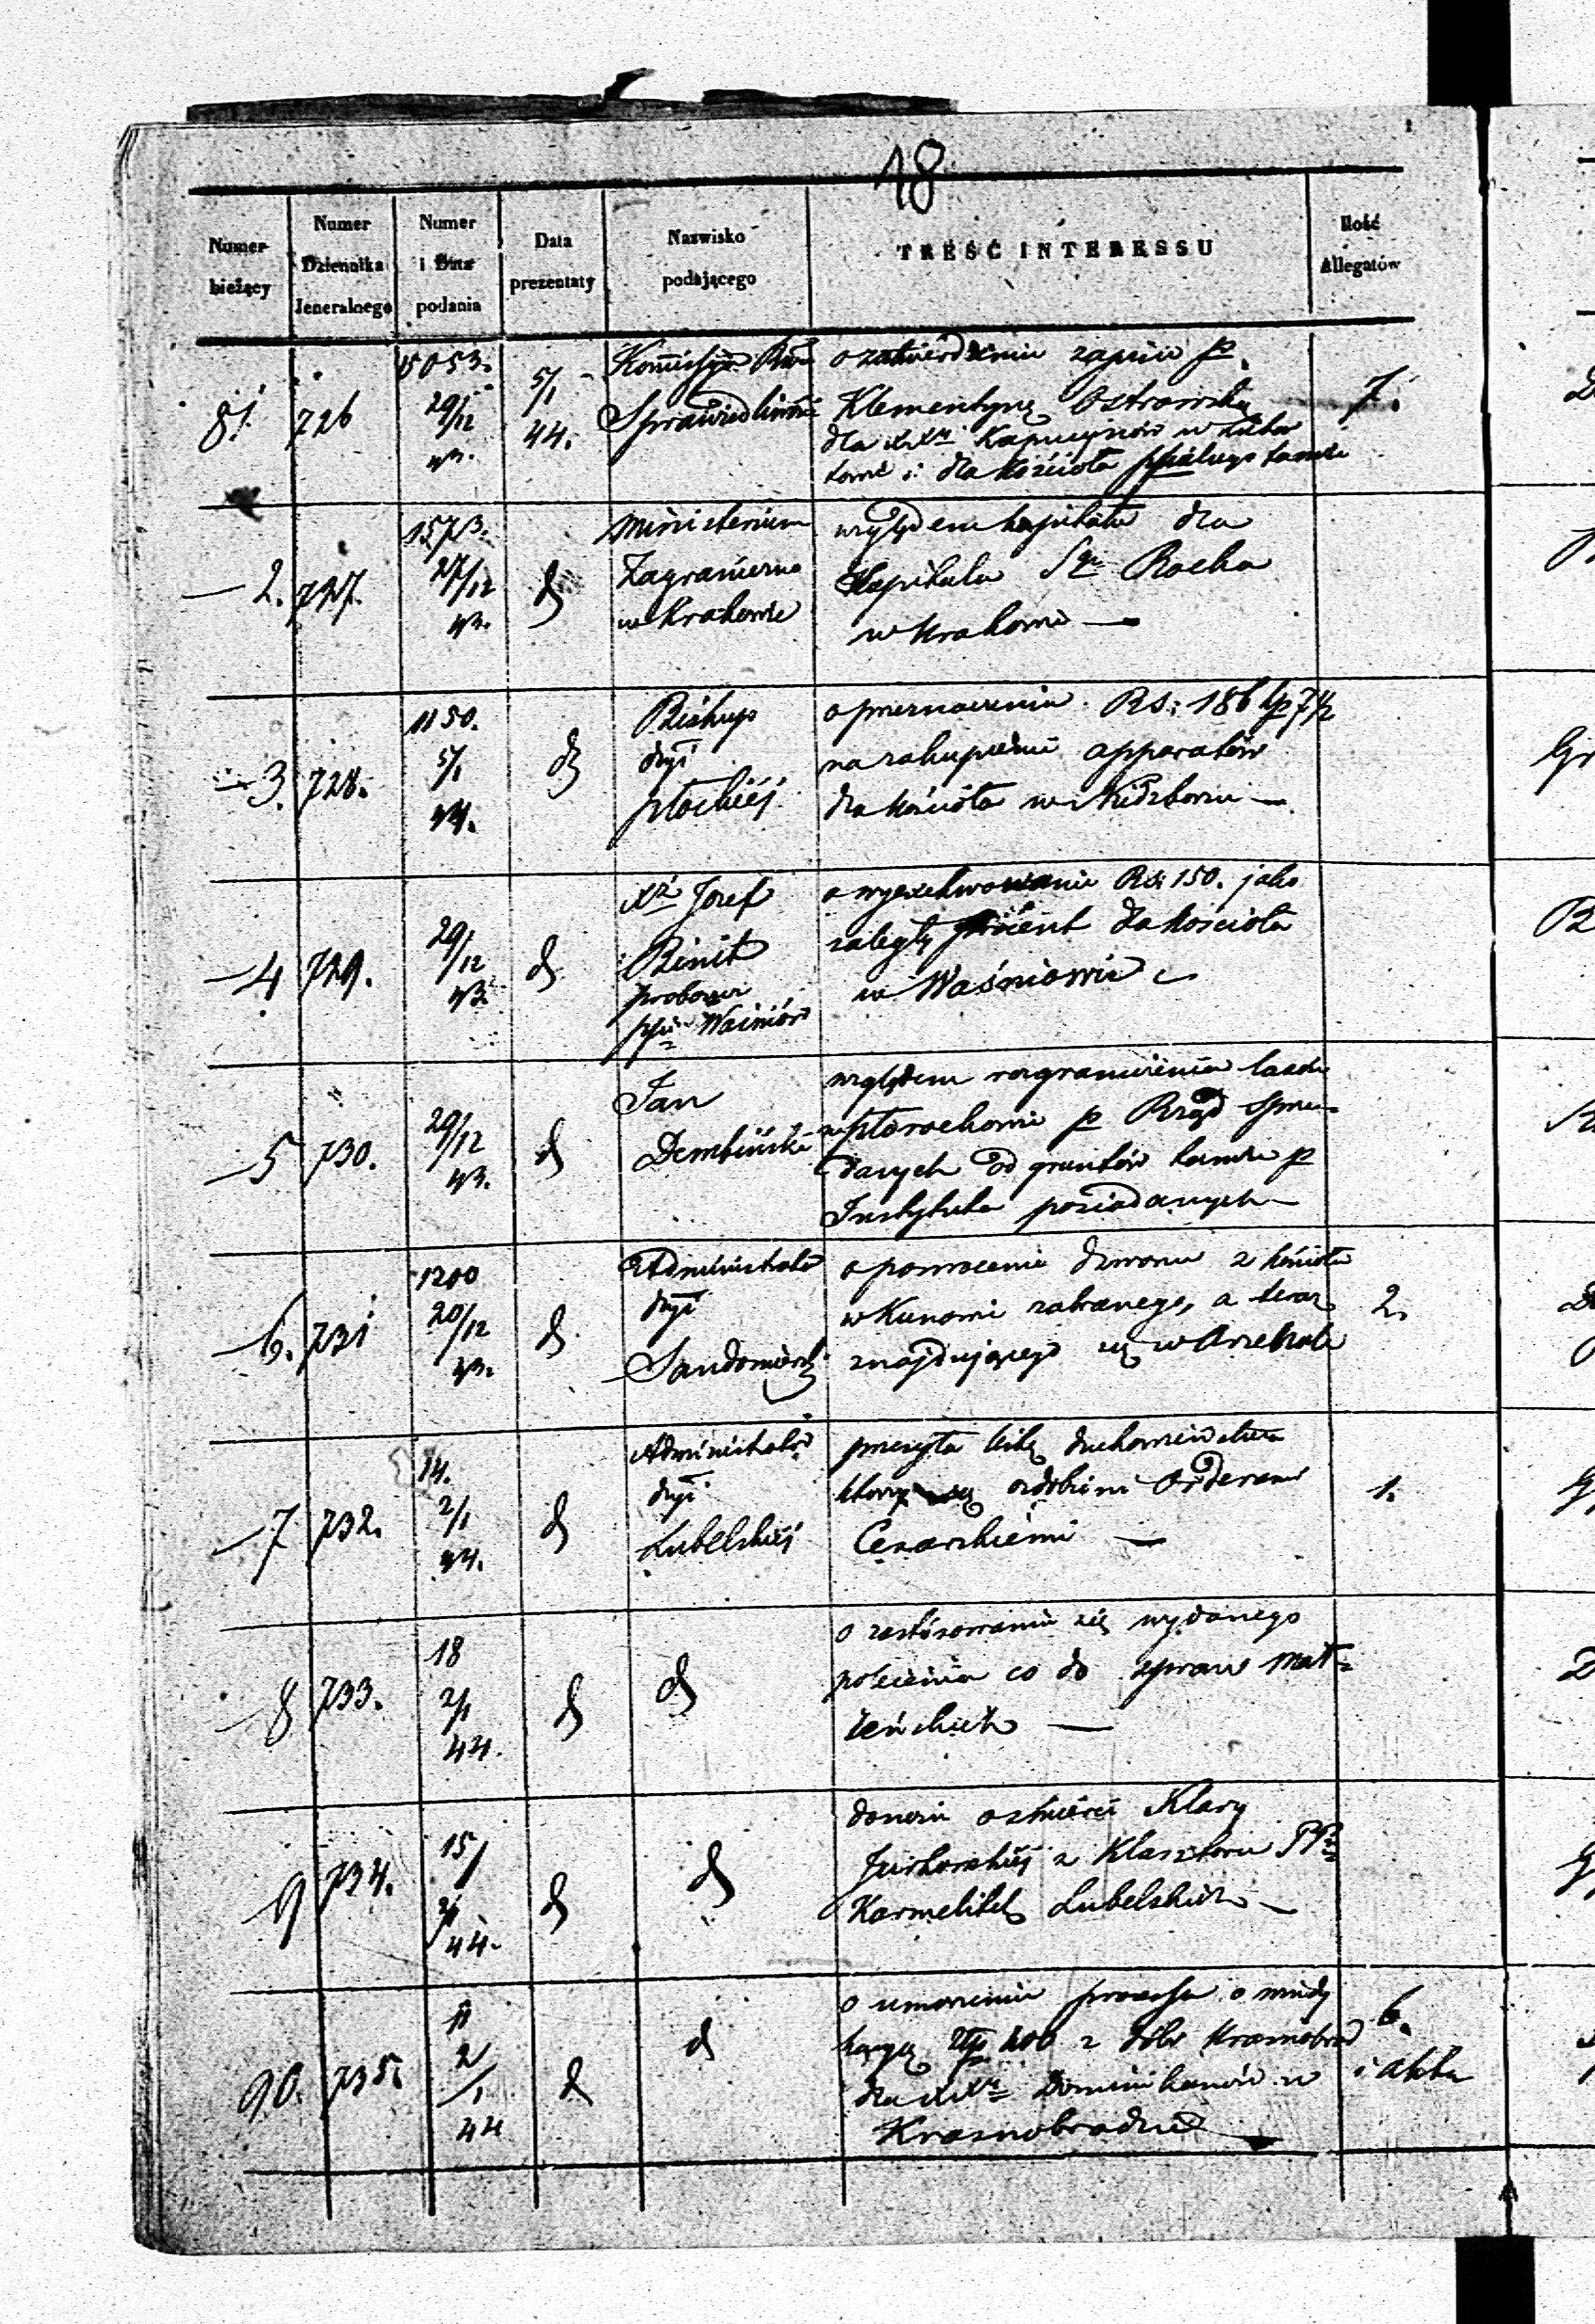 18
Numer bieżący
Numer Dziennika Jeneralnego
Numer i Data podania
Data prezentaty
Nazwisko podającego
TREŚĆ INTERESSU
Ilość Allegatów
81. 726 15053. 29/12 43. 5/1 44. 7.
Sprawiedliwości
o zatwierdzenie zapisu p.
Klementynę Ostrowską
dla XX Kapucynów w
i dla kościoła
2. 727. 1573. 27/12 43. d
Ministerium
Zagraniczne
w Krakowie
względem kapitału dla
Szpitala Sgo Rocha
w Krakowie —
3. 728. 1150. 5/1 44. d
Biskup
dyi
płockiéj
o przeznaczenie Rs: 186 kp 7 1/2
na zakupienie apparatów
dla kościoła w Niedzborzu —
4 729. 29/12 43. d
Xdz Jozef
Binit
proboszcz
Waśniów
o wyexekwowanie Rs: 150. jako
zaległy procent dla kościoła
w Waśniowie
5 730. 29/12 43. d
Jan
Dembiński
względem rozgraniczenia lasów
p Rząd sprze-
danych od gruntów tamże p
Instytuta posiadanych —
6. 731 1200 20/12 43. d 2.
Administrator
dyi
Sandomierskiej
o powrócenie dzwonu z kościoła
w Kunowie zabranego, a teraz
znajdującego się w Arsenale
7 732. 14. 2/1 44. d 1.
Administrator
dyi
Lubelskiéj
przesyła listę duchowieństwa
którzy są ozdobieni Orderami
Cesarskiémi —
8 733. 18 2/1 44. d d
o zastósowaniu się wydanego
polecenia co do spraw mał-
żeńskich —
9 734. 15/ 2/1 44. d d
donosi o śmierci Klary
z Klasztoru PP
Karmelitek Lubelskich —
90. 735. 11 2/1 44 d d 6. i akta
o umorzenie processu o
Złp 400 z dóbr Krasnobród
dla XX Dominikanów w
Krasnobrodzie —